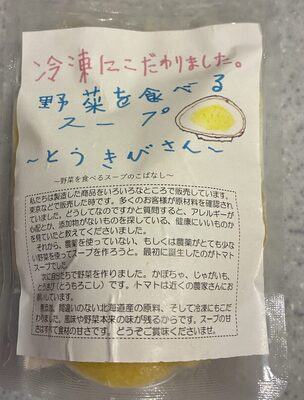 冷凍にこだわりました。
野菜を食べる
スープ
～とうきびさん～
～野菜を食べるスープのこばなし～
私たちは製造した商品をいろいろなところで販売しています。
東京などで販売した時です。多くのお客様が原材料を確認され
ていました。どうしてなのですかと質問すると、アレルギーが
心配とか、添加物がないものを探している、健康にいいものか
を見ていたと教えてくださいました。
それから、農薬を使っていない、もしくは農薬がとても少な
い野菜を使ってスープを作ろうと。最初に誕生したのがトマト
スープでした。
次に自分たちで野菜を作りました。かぼちゃ、じゃがいも、
とうきび（とうもろこし）です。トマトは近くの農家さんにお
願いしています。
無添加、間違いのない北海道産の原料、そして冷凍にもこだ
わりました。風味や野菜本来の味が残るからです。スープの甘
さはすべて食材の甘さです。どうぞご賞味くださいませ。